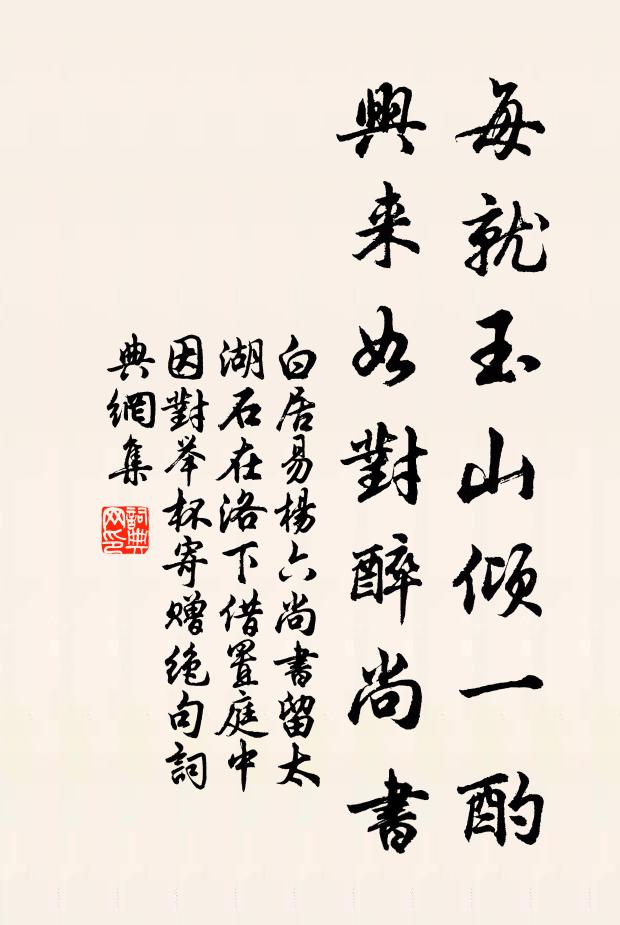 每就玉山傾一酌
興来如對醉尚書
白居易楊六尚書留太
湖石在洛下借置庭中
因對举杯寄赠绝句詞
典網集
詞典网印